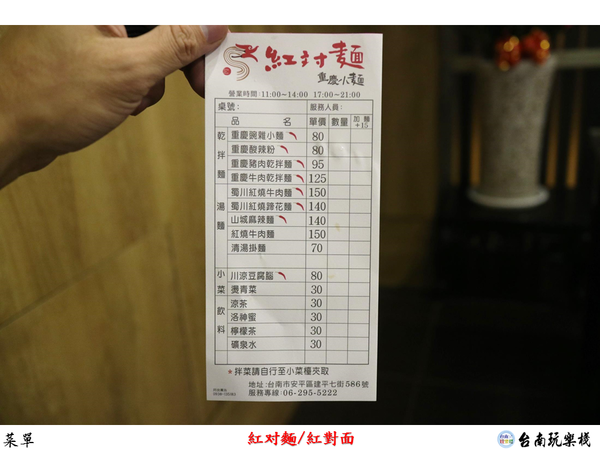 紅对麵
重慶小麵
營業時間:11:00~14:00 17:00~21:00
桌號: 服務人員:
品 名 單價 數量 加麵+15
乾拌麵
重慶豌雜小麵 80
重慶酸辣粉 80
重慶豬肉乾拌麵 95
重慶牛肉乾拌麵 125
湯麵
蜀川紅燒牛肉麵 150
蜀川紅燒蹄花麵 140
山城麻辣麵 140
紅燒牛肉麵 150
清湯掛麵 70
小菜飲料
川涼豆腐腦 80
燙青菜 30
涼茶 30
洛神蜜 30
檸檬茶 30
礦泉水 30
*拌菜請自行至小菜檯夾取
地址:台南市安平區建平七街586號
服務專線:06-295-5222
菜單
紅对麵/紅對面
台南玩樂棧